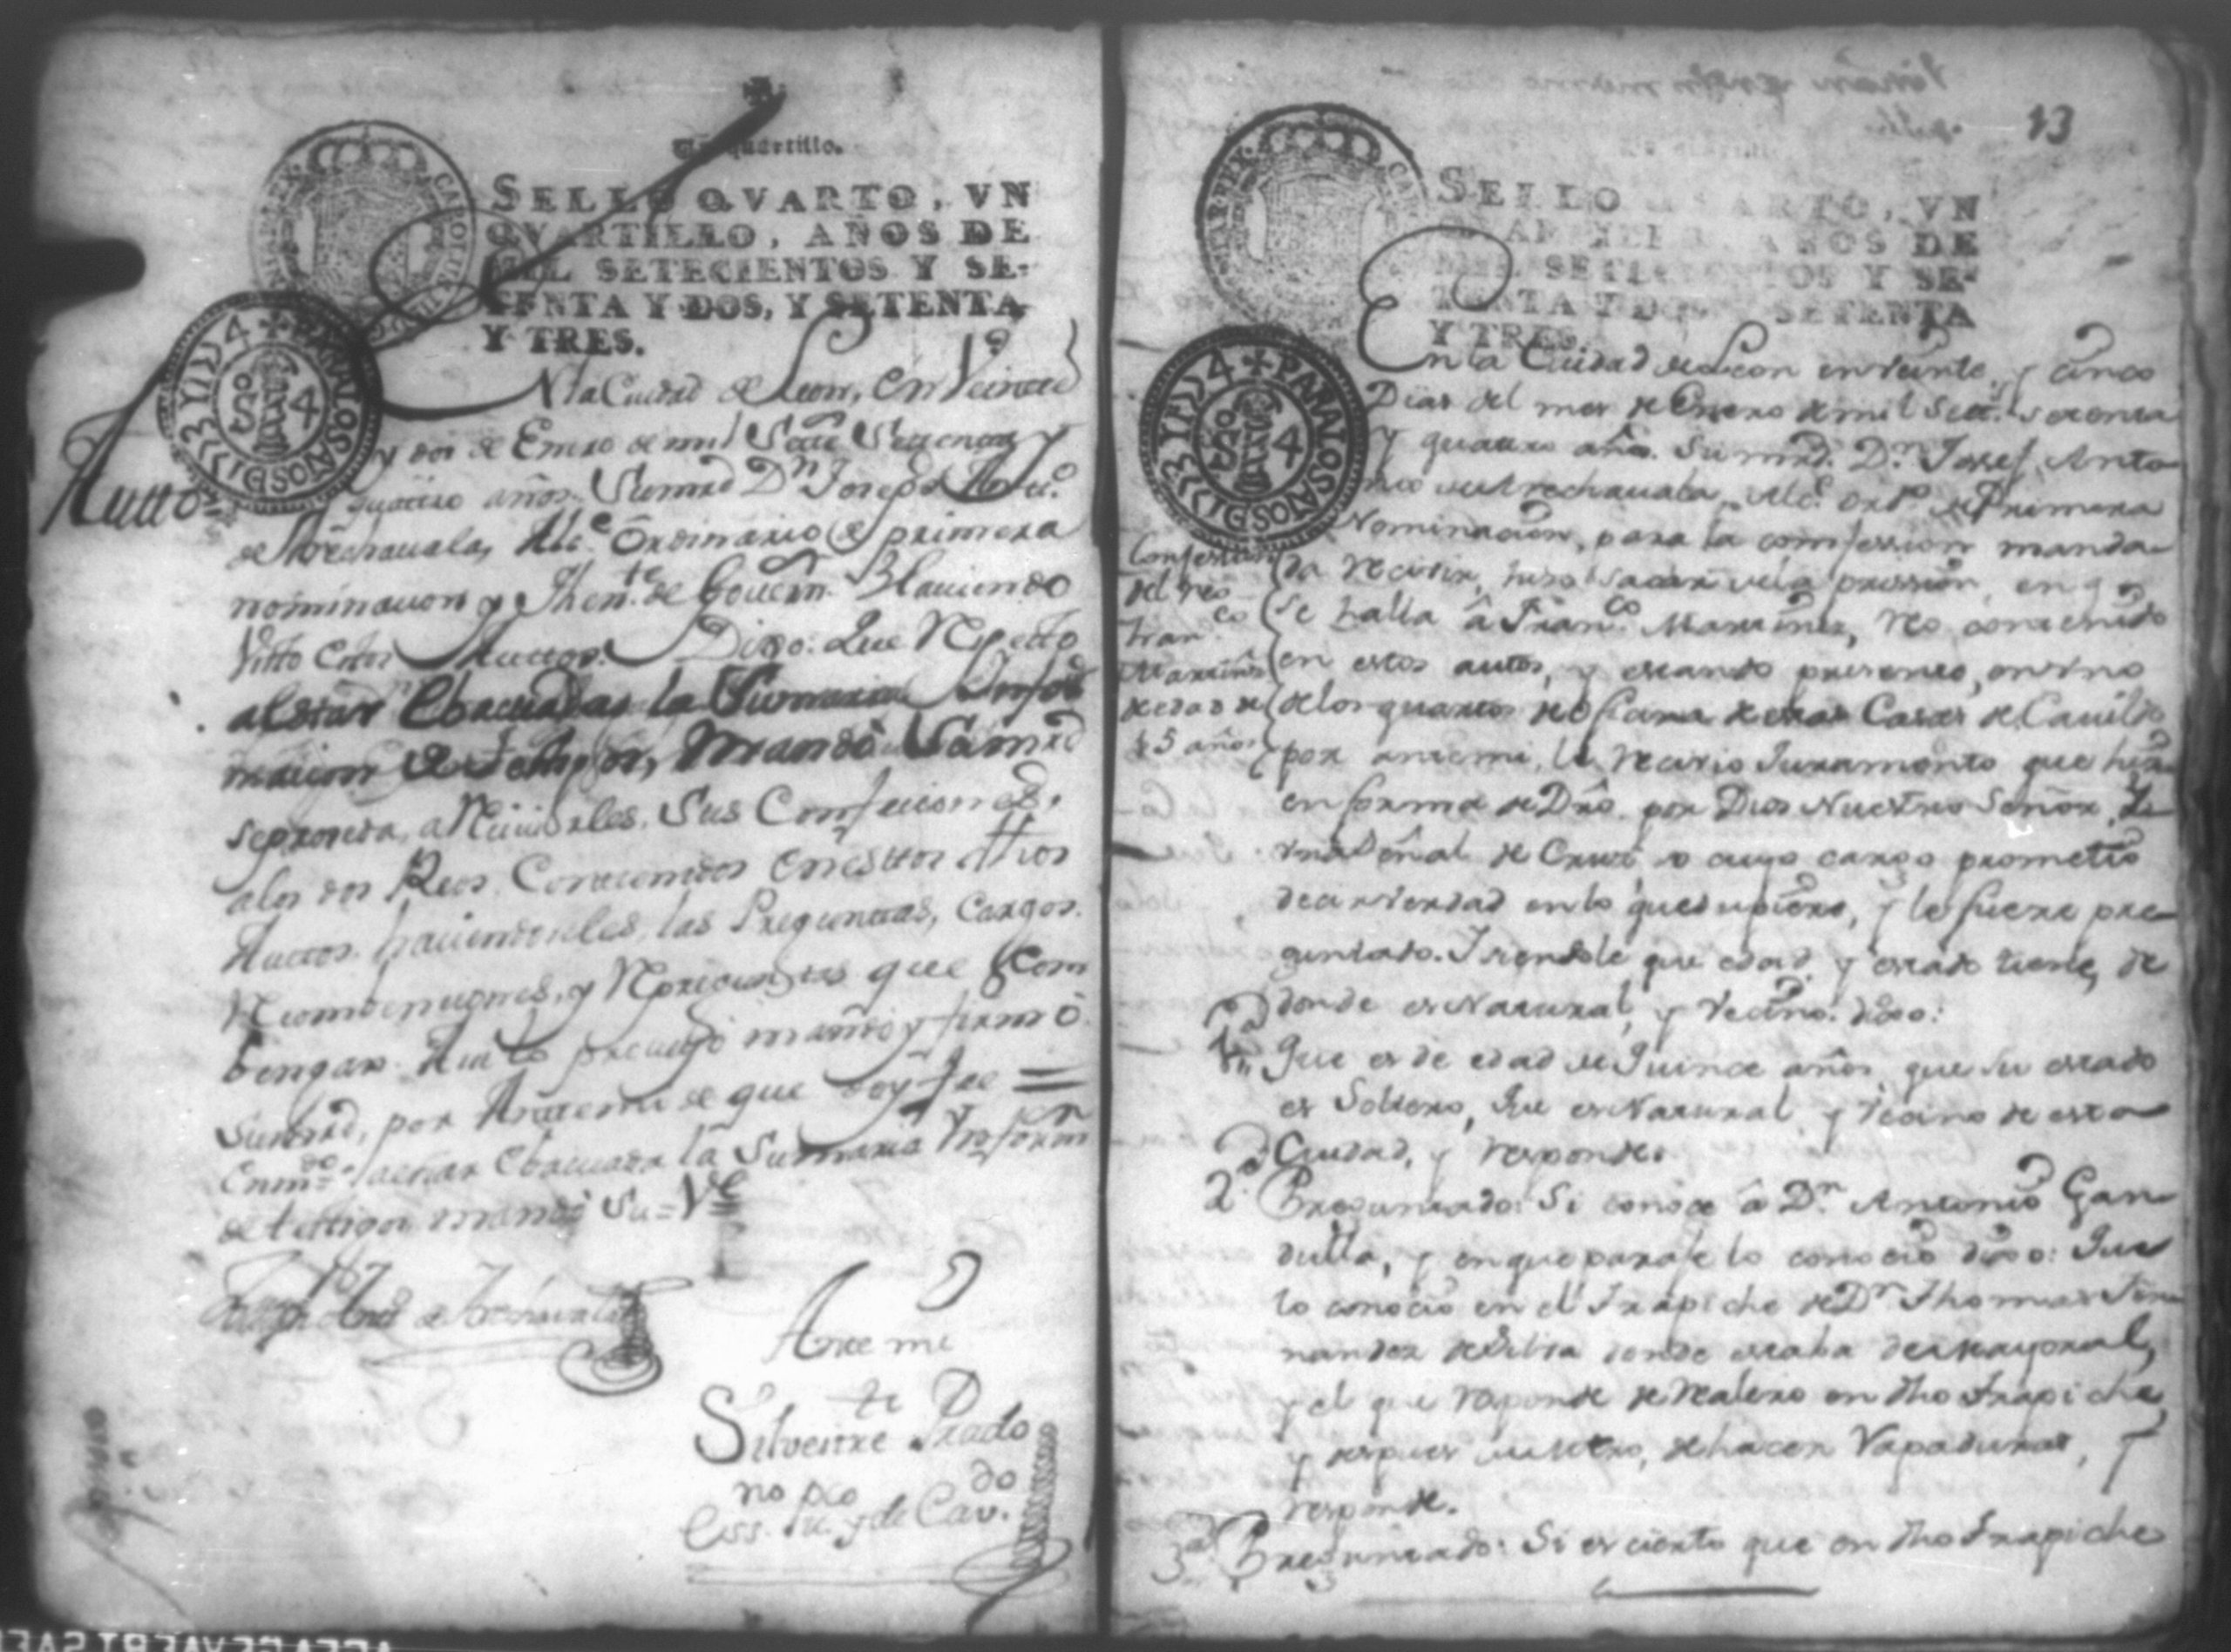 Un quartillo.
SELLO QVARTO, VN
QVARTILLO, AÑOS DE
MIL SETECIENTOS Y SE-
TENTA Y DOS, Y SETENTA
Y TRES.
PARA LOS AÑOS DI 1773 Y 1774
SO 4
Autto
N la Ciudad de Leon, en Veinte
y dos de Enero de mil Sette Settenta y
quattro años. Su mrd Dn Joseph Antt.o
de Arechauala, Alc.e Ordinario de primera
nominacion y Then.te de Govern. Haviendo
Visto estos Auttos. Dixo: Que Respecto
al estar Ebacuadas la Sumaria Infor
macion de testigos, mandó Su mrd
se proceda, a Reciuirles, Sus Confeciones,
alos dos Reos Contenidos en esttos dhos
Auttos haciendoles, las Preguntas, cargos.
Reconvenciones, y Repreguntas que Com
bengan. Auto proveyó mandó y firmó
Su mrd, por Ante mi de que doy fee =
Enm.do al estar Ebacuada la Sumaria Inform.n
de testigos mandó Su = V.e
Joseph Ant.o de Arechauala
Ante mi
Silvestre Prado
Ess.no pu.co y de Cav.do
13
SELLO QVARTO, VN
QVARTILLO, AÑOS DE
MIL SETECIENTOS Y SE-
TENTA Y DOS, Y SETENTA
Y TRES.
PARA LOS AÑOS DI 1773 Y 1774
SO 4
En la Ciudad de Leon en veinte, y cinco
Dias del mes de Enero de mil Sett.s setenta
y quatro años. Su mrd. D.n Josef Anto
nio de Arechauala, Alc.e ord.o de Primera
Nominacion, para la confession manda-
da reciuir, hizo sacar de la prission, en q.e
se halla â Fran.co Martinez, reo contenido
en estos autos, y estando presente, en vno
de los quartos de oficina de estas Casas de Cauildo
por ante mi, le reciuio Juramento que hizo
en forma de Dro. por Dios Nuestro Señor, y
vna Señal de Cruz, vo cuyo cargo prometio
decir verdad en lo que supiere, y le fuere pre-
guntado. Y siendole que edad y estado tiene, de
donde es Natural, y Vecino. dixo:
Confession
del reo
Fran.co
Martines
de edad de
15 años
1.a Que es de edad de Quince años, que su estado
es Soltero, Que es Natural y vecino de esta
Ciudad, y responde.
2.a Preguntado: Si conoce â D.n Antonio Gan-
dulla, y en que paraje lo conocio dixo: Que
lo conocio en el Trapiche de D.n Thomas Fer-
nandez de Silva donde estaba de mayoral,
y el que responde de realero en dho Trapiche
y despues de esto, de hacer Rapaduras, y
responde.
3.a Preguntado: Si es cierto que en dho Trapiche